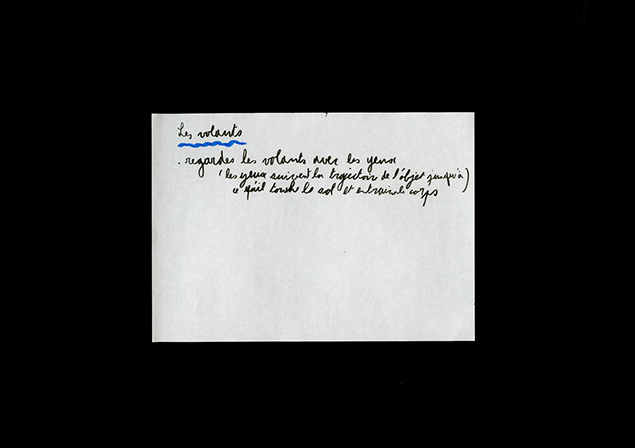 Les volants
. regardes les volants avec les yeux
(les yeux suivent la trajectoire de l'objet jusqu'à)
ce qu'il touche le sol et entraine le corps